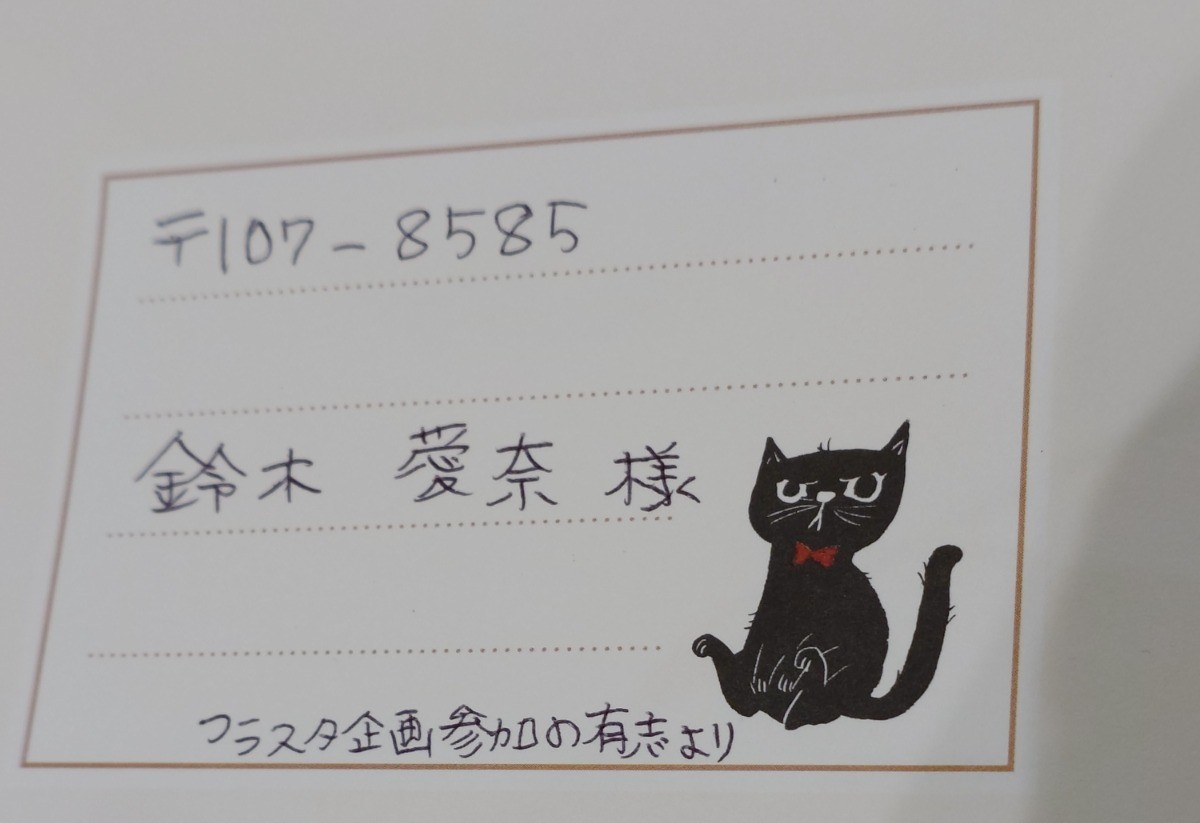 〒107-8585
鈴木 愛奈 様
フラスタ企画参加の有志より